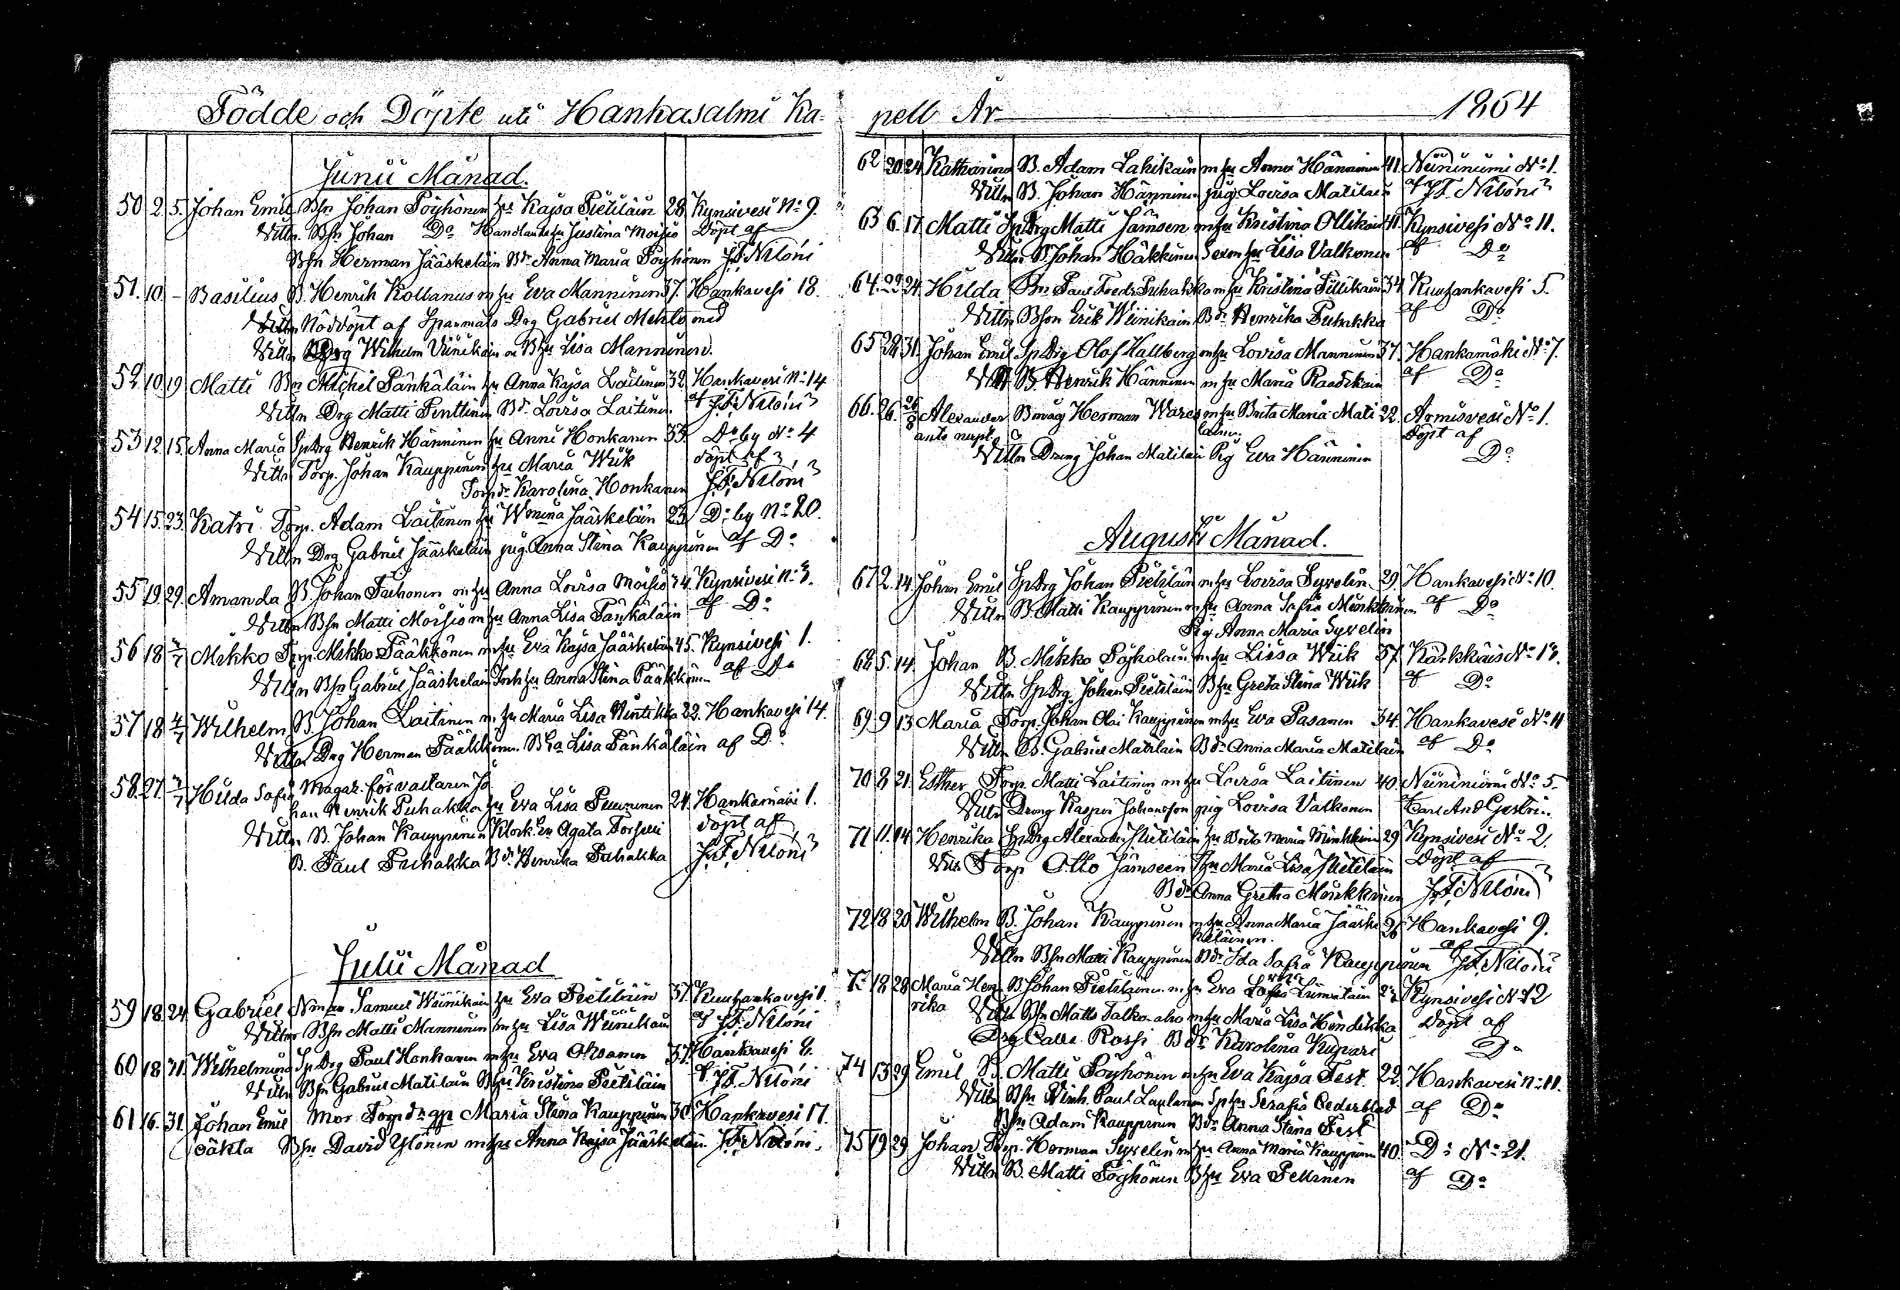 Födde och Döpte uti Hankasalmi Ka-
Junii Månad.
50 2. 5. Johan Emil Bsn Johan Pöyhönen hu Kajsa Pietiläin 28. Kynsivesi No 9.
Vittn. Bsn Johan Do Justina Moisio Döpt af
Bsn Herman Jääskeläin Bdr Anna Maria Pöyhönen J.F. Niloni
51. 10 – Basilius B. Henrik Kollanus m hu Eva Manninen 37. Hankavesi 18.
Vittn Nöddöpt af Sparmans Drg Gabriel Mehto med
Vittn Drg Wilhelm Viinikain o Bhu Lisa Manninen.
52 10 19 Matti Bn Michel Pänkäläin hu Anna Kajsa Laitinen 32. Hankavesi No 14
Vittn Drg Matti Penttinen Bdr Lovisa Laitinen af J.F. Niloni
53 12 15. Anna Maria SpDrg Henrik Hänninen hu Anni Honkanen 33. Do by No 4
Vittn Torp. Johan Kauppinen hu Maria Wiik döpt af
Torpdr Karolina Honkanen J.F. Niloni
54 15 23. Katri Torp. Adam Laitinen hu Jääskeläin 23. Do by No 20.
Vittn Drg Gabriel Jääskeläin pig. Anna Stina Kauppinen af Do
55 19 29. Amanda B. Johan m hu Anna Lovisa Moisio 34. Kynsivesi No 3.
Vittn Bsn Matti Moisio m hu Anna Lisa Pänkäläin af Do
56 18 2/7 Mikko Torp. Mikko Pääkkönen m hu Eva Kajsa Jääskeläin 45. Kynsivesi 1.
Vittn Bsn Gabriel Jääskeläin hu Anna Stina Pääkkönen af Do
57 18 4/7 Wilhelm B Johan Laitinen m hu Maria Lisa Hintikka 22. Hankavesi 14.
Vittn Drg Herman Pääkkönen. Bhu Lisa Pänkäläin af Do
58. 27. 3/7 Hilda Sofia Magaz. förvaltaren Jo
han Henrik Puhakka hu Eva Lisa 24. Hankamäki 1.
Vittn B. Johan Kauppinen Klock. En Agata döpt af
B. Paul Puhakka Bdr Henrika Puhakka J.F. Niloni
Julii Månad
59 18. 24. Gabriel Samuel Wiinikain hu Eva Pietiläin 37. Kuuhankavesi 1.
Vittn Bsn Matti Manninen m hu Lisa Wiinikain af J.F. Niloni
60 18 31. Wilhelmina SpDrg Paul Honkanen m hu Eva Oksanen 37. Hankavesi 6.
Vittn Bsn Gabriel Matilain Bhu Kristina Pietiläin af J.F. Niloni
61 16. 31. Johan Emil Mor Torpdr Maria Stina Kauppinen 30. Hankavesi 17.
oäkta Bsn David Ylönen m hu Anna Kajsa Jääskeläin J.F. Niloni.
pell År 1864
62 20 24 Katharina B. Adam Lahikain m hu Anna Hänninen 41. Niininiemi No 1.
Vittn B. Johan Hänninen pig Lovisa Matilain af J.F. Niloni
63 6. 17. Matti SpDrg Matti Jämsen m hu Kristina Ollikain 41. Kynsivesi No 11.
Vittn B. Johan Häkkinen hu Lisa Valkonen af Do
64. 22 24. Hilda Bn Paul Fredr Puhakka m hu Kristina 34. Kuuhankavesi 5.
Vittn Bson Erik Wiinikain Bdr Henrika Puhakka af Do
65 28 31. Johan Emil SpDrg Olof Hallberg m hu Lovisa Manninen 37. Hankamäki No 7.
Vitt B. Henrik Hänninen m hu Maria Raatikain af Do
66. 26. 26/8 Alexander Herman Wares m hu Brita Maria Mati 22. Armisvesi No 1.
ante nupt. lainen. Döpt af
Vittn Dreng Johan Matilain Pig Eva Hänninen Do
Augusti Månad.
67 2. 14. Johan Emil SpDrg Johan Pietiläin m hu Lovisa Syvelin 29. Hankavesi No 10.
Vittn B. Matti Kauppinen m hu Anna Sofia Minkkinen af Do
Pig Anna Maria Syvelin
68 5. 14. Johan B. Mikko Pöykoläin m hu Liisa Wiik 37. Kärkkäis No 13.
Vittn SpDrg Johan Pietiläin Bhu Greta Stina Wiik af Do
69 9 13 Maria Torp. Johan Kauppinen m hu Eva Pasanen 34. Hankavesi No 11
Vittn B. Gabriel Matilain Bdr Anna Maria Matilain af Do
70 8 21. Esther Torp. Matti Laitinen m hu Lovisa Laitinen 40. Niininiemi No 5.
Vittn Dreng Kasper Johansson pig Lovisa Valkonen Carl And
71 11. 14. Henrika SpDrg Alexander Pietiläin hu Brita Maria Minkkinen 29. Kynsivesi No 2.
Vittn Torp Otto Jämseen Bhu Maria Lisa Pietiläin Döpt af
Bdr Anna Gretha Minkkinen J.F. Niloni
72 18 20 Wilhelm B. Johan Kauppinen m hu Anna Maria Jääske 26 Hankavesi 9.
keläinen.
Vittn Bsn Matti Kauppinen Bdr Ida Sofia Kauppinen af J.F. Niloni
73 18 28 Maria Hen B Johan Pietiläinen m hu Eva Liimatain Kynsivesi No 12
rika Vittn Bsn Matts m hu Maria Lisa Hindikka Döpt af
Drg Calle Rossi Bdr Karolina Kupari Do
74 13 29 Emil B. Matti Pöyhönen m hu Eva Kajsa Fest. 22. Hankavesi No 11.
Vittn Bn Paul Laulanen hu Serafia Cederblad af Do
Bsn Adam Kauppinen Bdr Anna Stina Fest
75 19 29 Johan Torp. Herman Syvelin m hu Anna Maria Kauppinen 40. Do No 21.
Vittn B. Matti Pöyhönen Bhu Eva Pellinen af Do